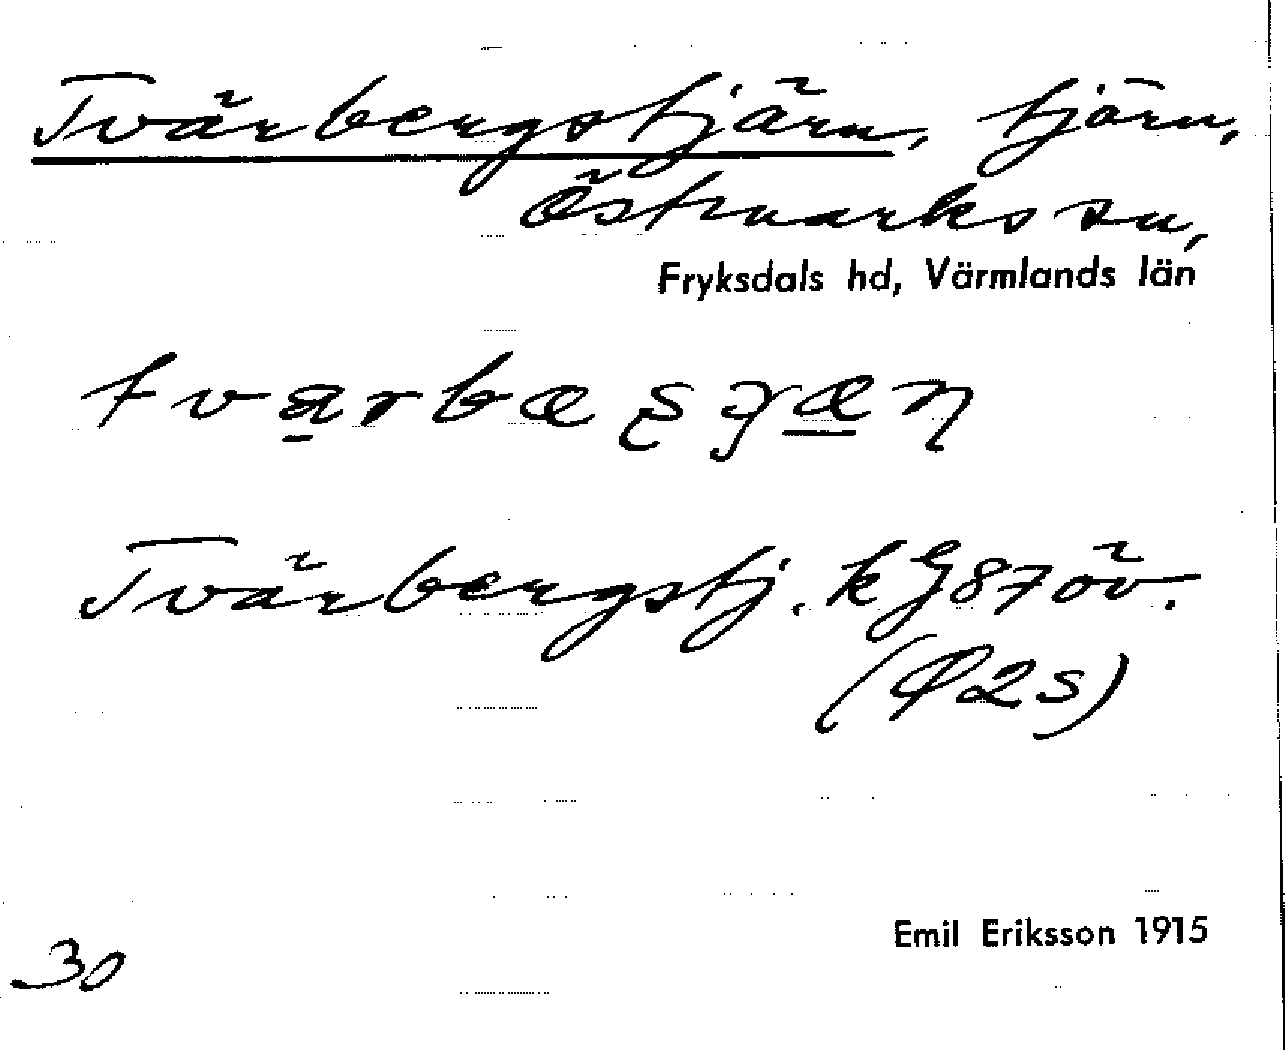 Tvärbergstjärn, tjärn,
Östmarks sn,
Fryksdals hd, Värmlands län
Tvärbergstj. kg87öv.
(Q2s)
Emil Eriksson 1915
30